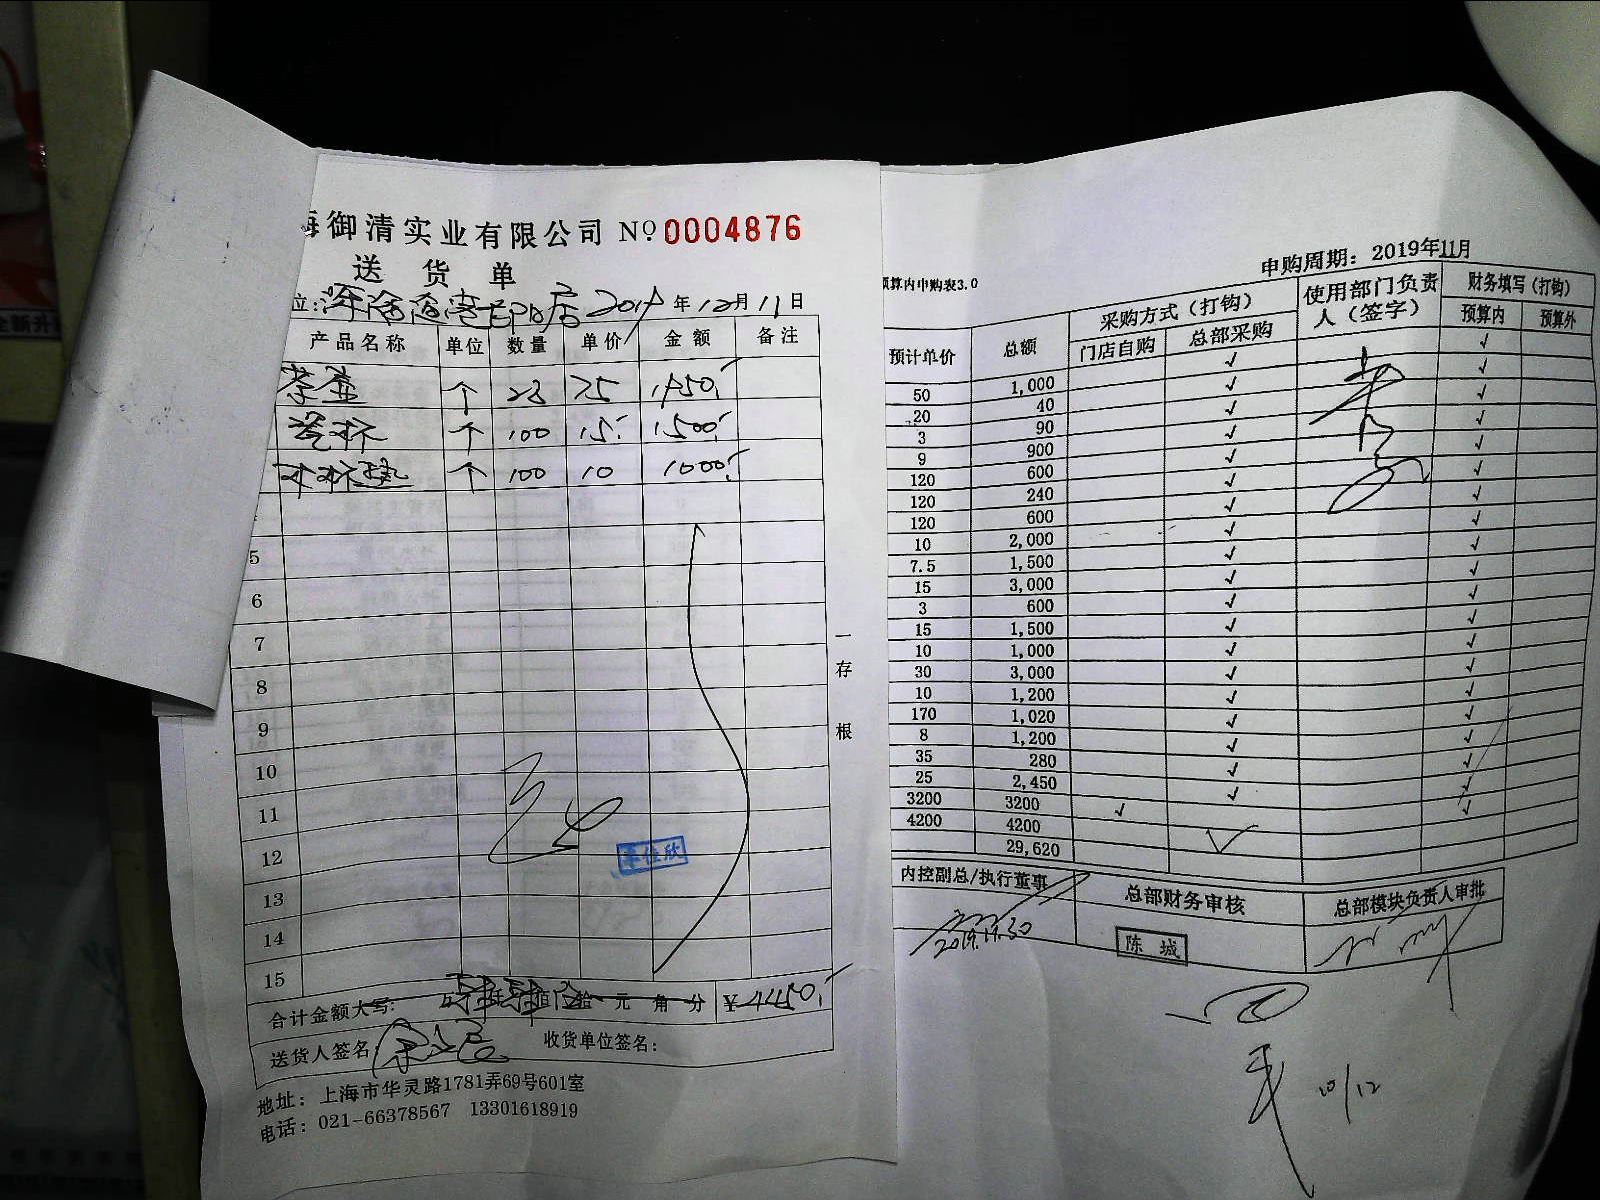 海御清实业有限公司 NO. 0004876
送货单
位: 2019年12月11日
产品名称 单位 数量 单价 金额 备注
茶壶 个 75 1950
瓷杯 个 100 15 1500
木杯垫 个 100 10 1000
5
6
7
8
9
10
11
12
13
14
15
一存根
合计金额大写: 仟 佰 拾 元 角 分 ¥4450
送货人签名 收货单位签名:
地址: 上海市华灵路1781弄69号601室
电话: 021-66378567 13301618919
预算内申购表3.0
申购周期: 2019年11月
预计单价 总额 采购方式(打钩) 使用部门负责人(签字) 财务填写(打钩)
门店自购 总部采购 预算内 预算外
50 1,000 √ √
20 40 √ √
3 90 √ √
9 900 √ √
120 600 √ √
120 240 √ √
120 600 √ √
10 2,000 √ √
7.5 1,500 √ √
15 3,000 √ √
3 600 √ √
15 1,500 √ √
10 1,000 √ √
30 3,000 √ √
10 1,200 √ √
170 1,020 √ √
8 1,200 √ √
35 280 √ √
25 2,450 √ √
3200 3200 √ √
4200 4200 √
29,620
内控副总/执行董事 总部财务审核 总部模块负责人审批
陈城
10/12